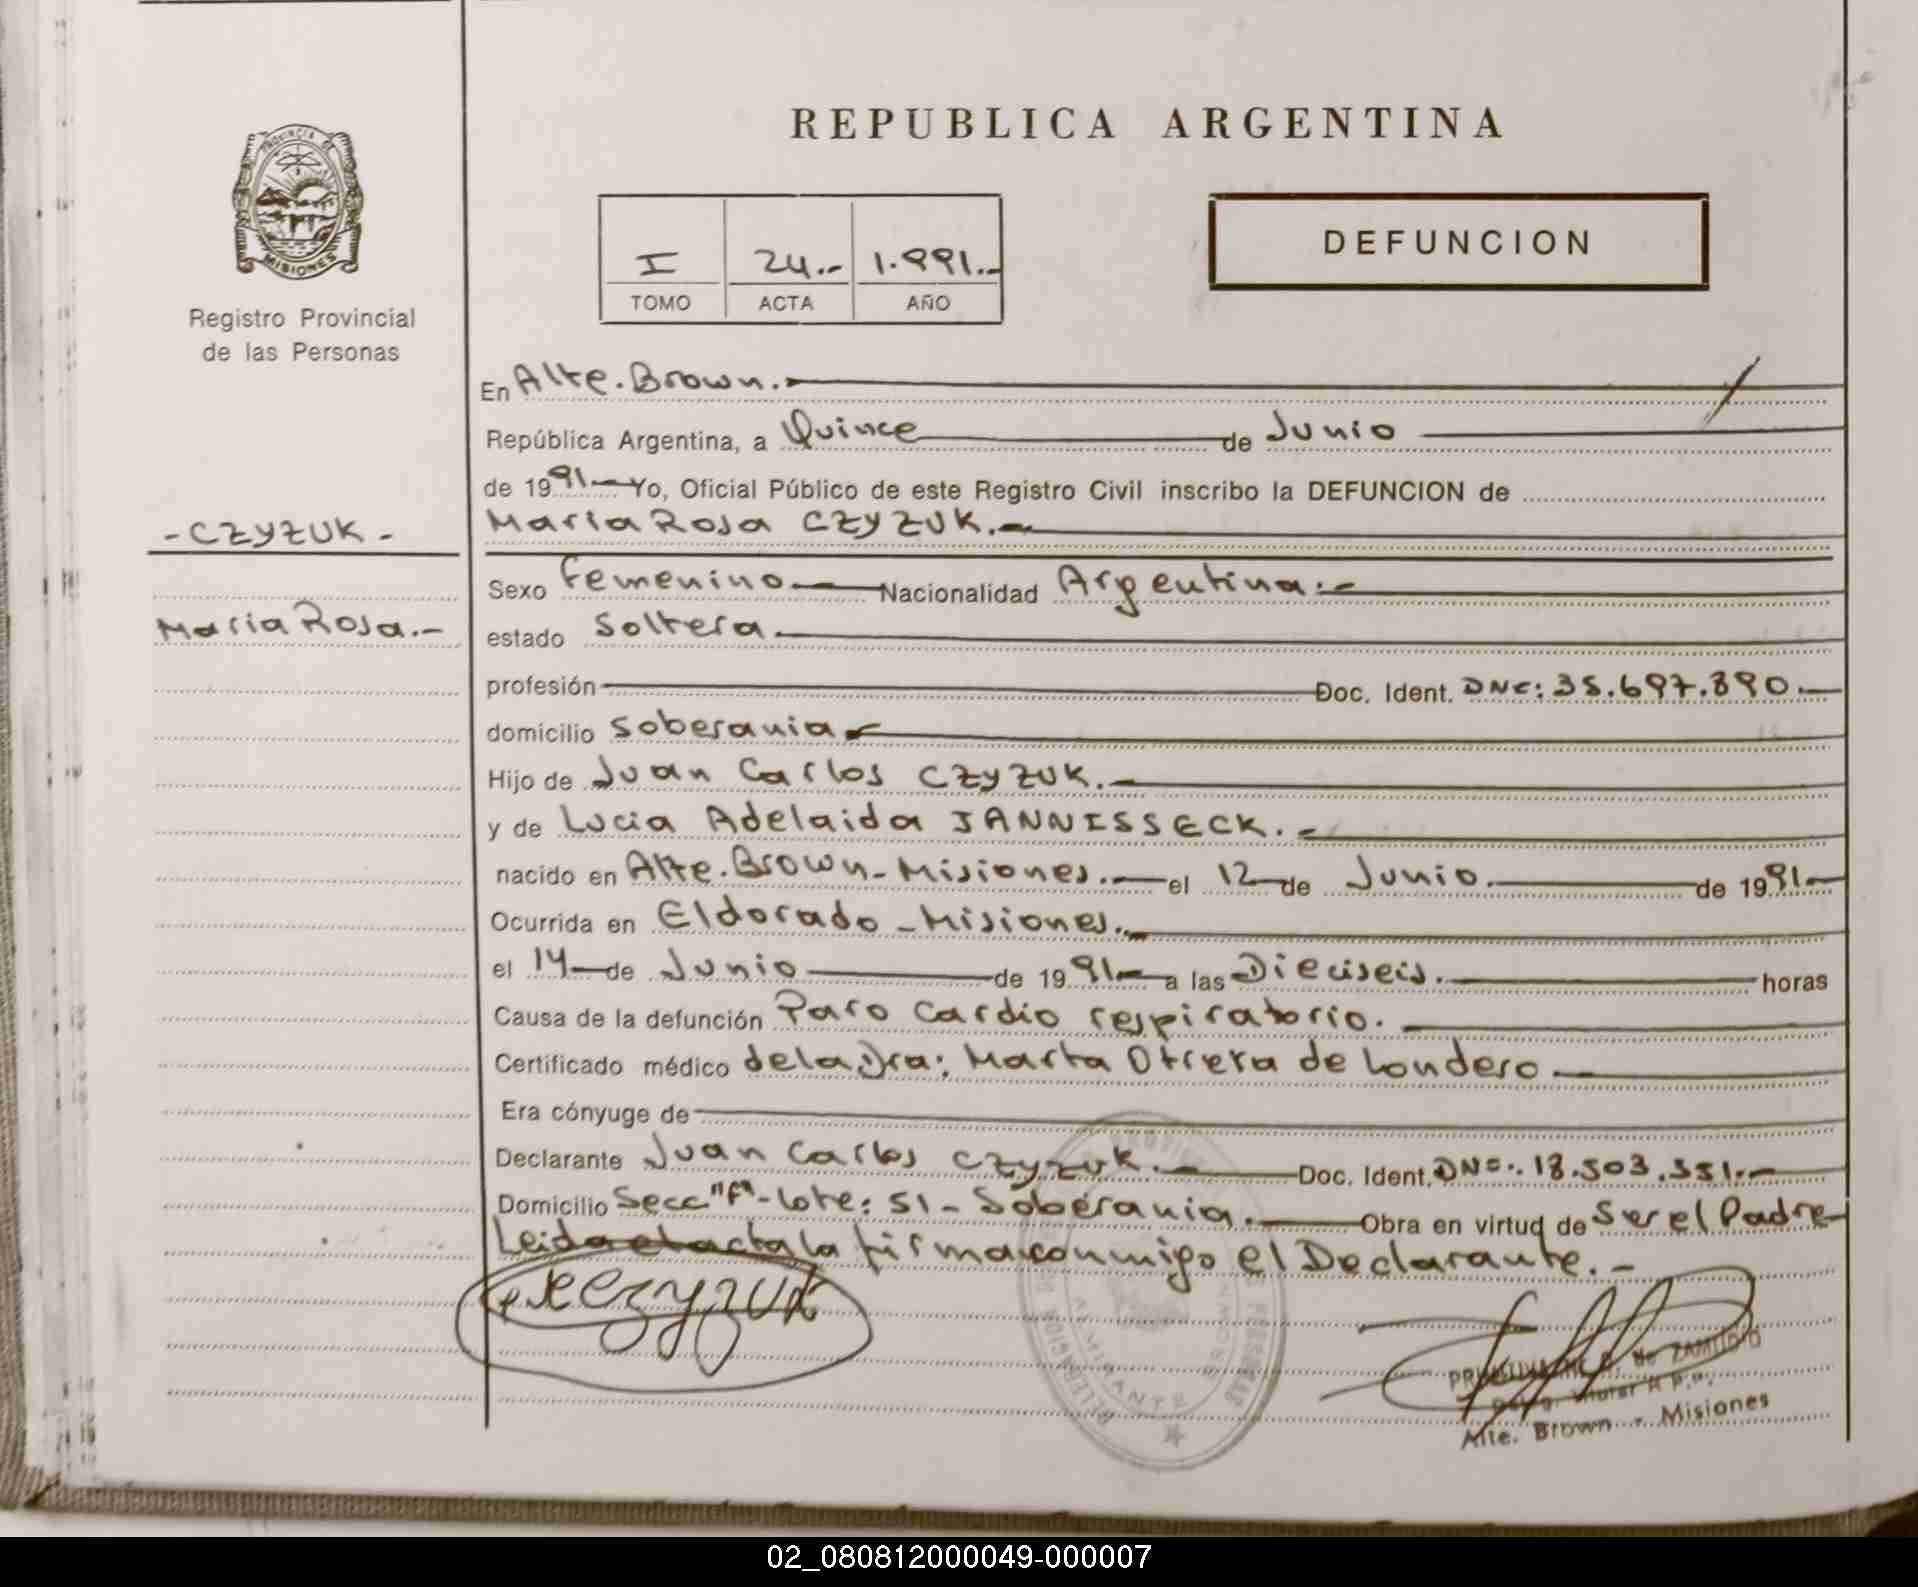 REPUBLICA ARGENTINA
PROVINCIA DE
MISIONES
Registro Provincial
de las Personas
I 24.- 1.991.-
TOMO ACTA AÑO
DEFUNCION
En Alte. Brown.-
República Argentina, a Quince de Junio
de 1991 Yo, Oficial Público de este Registro Civil inscribo la DEFUNCION de
- CZYZUK -
Maria Rosa CZYZUK.-
Sexo femenino Nacionalidad Argentina.-
Maria Rosa.-
estado Soltera.
profesión Doc. Ident. DNI: 35.697.890.-
domicilio Soberania
Hijo de Juan Carlos CZYZUK.-
y de Lucia Adelaida JANNISSECK.-
nacido en Alte. Brown - Misiones.- el 12 de Junio. de 1991-
Ocurrida en Eldorado - Misiones.-
el 14 de Junio de 1991- a las Dieciseis. horas
Causa de la defunción Paro Cardio respiratorio.-
Certificado médico de la Dra: Marta Otrera de Londero
Era cónyuge de
Declarante Juan Carlos CZYZUK.- Doc. Ident. DNI.. 18.503.551.-
Domicilio Secc "F" - Lote: 51 - Soberania. Obra en virtud de Ser el Padre
Leida el acta la firma conmigo el Declarante.-
CZYZUK
ALMIRANTE
de ZAMUDIO
Titular R.P.P.
Alte. Brown - Misiones
02_080812000049-000007